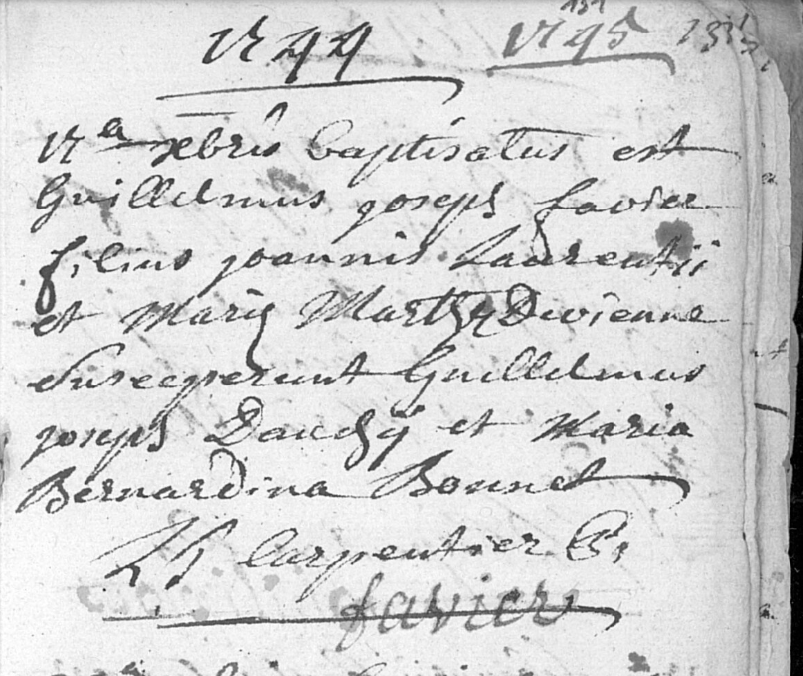 1744 1745
17a xbris baptisatus est
Guillelmus joseph favier
filius joannis Laurentii
et Mariæ Marthæ Devienne
Susceperunt Guillelmus
joseph Dauchÿ et Maria
Bernardina Bonnet
Carpentier
favier